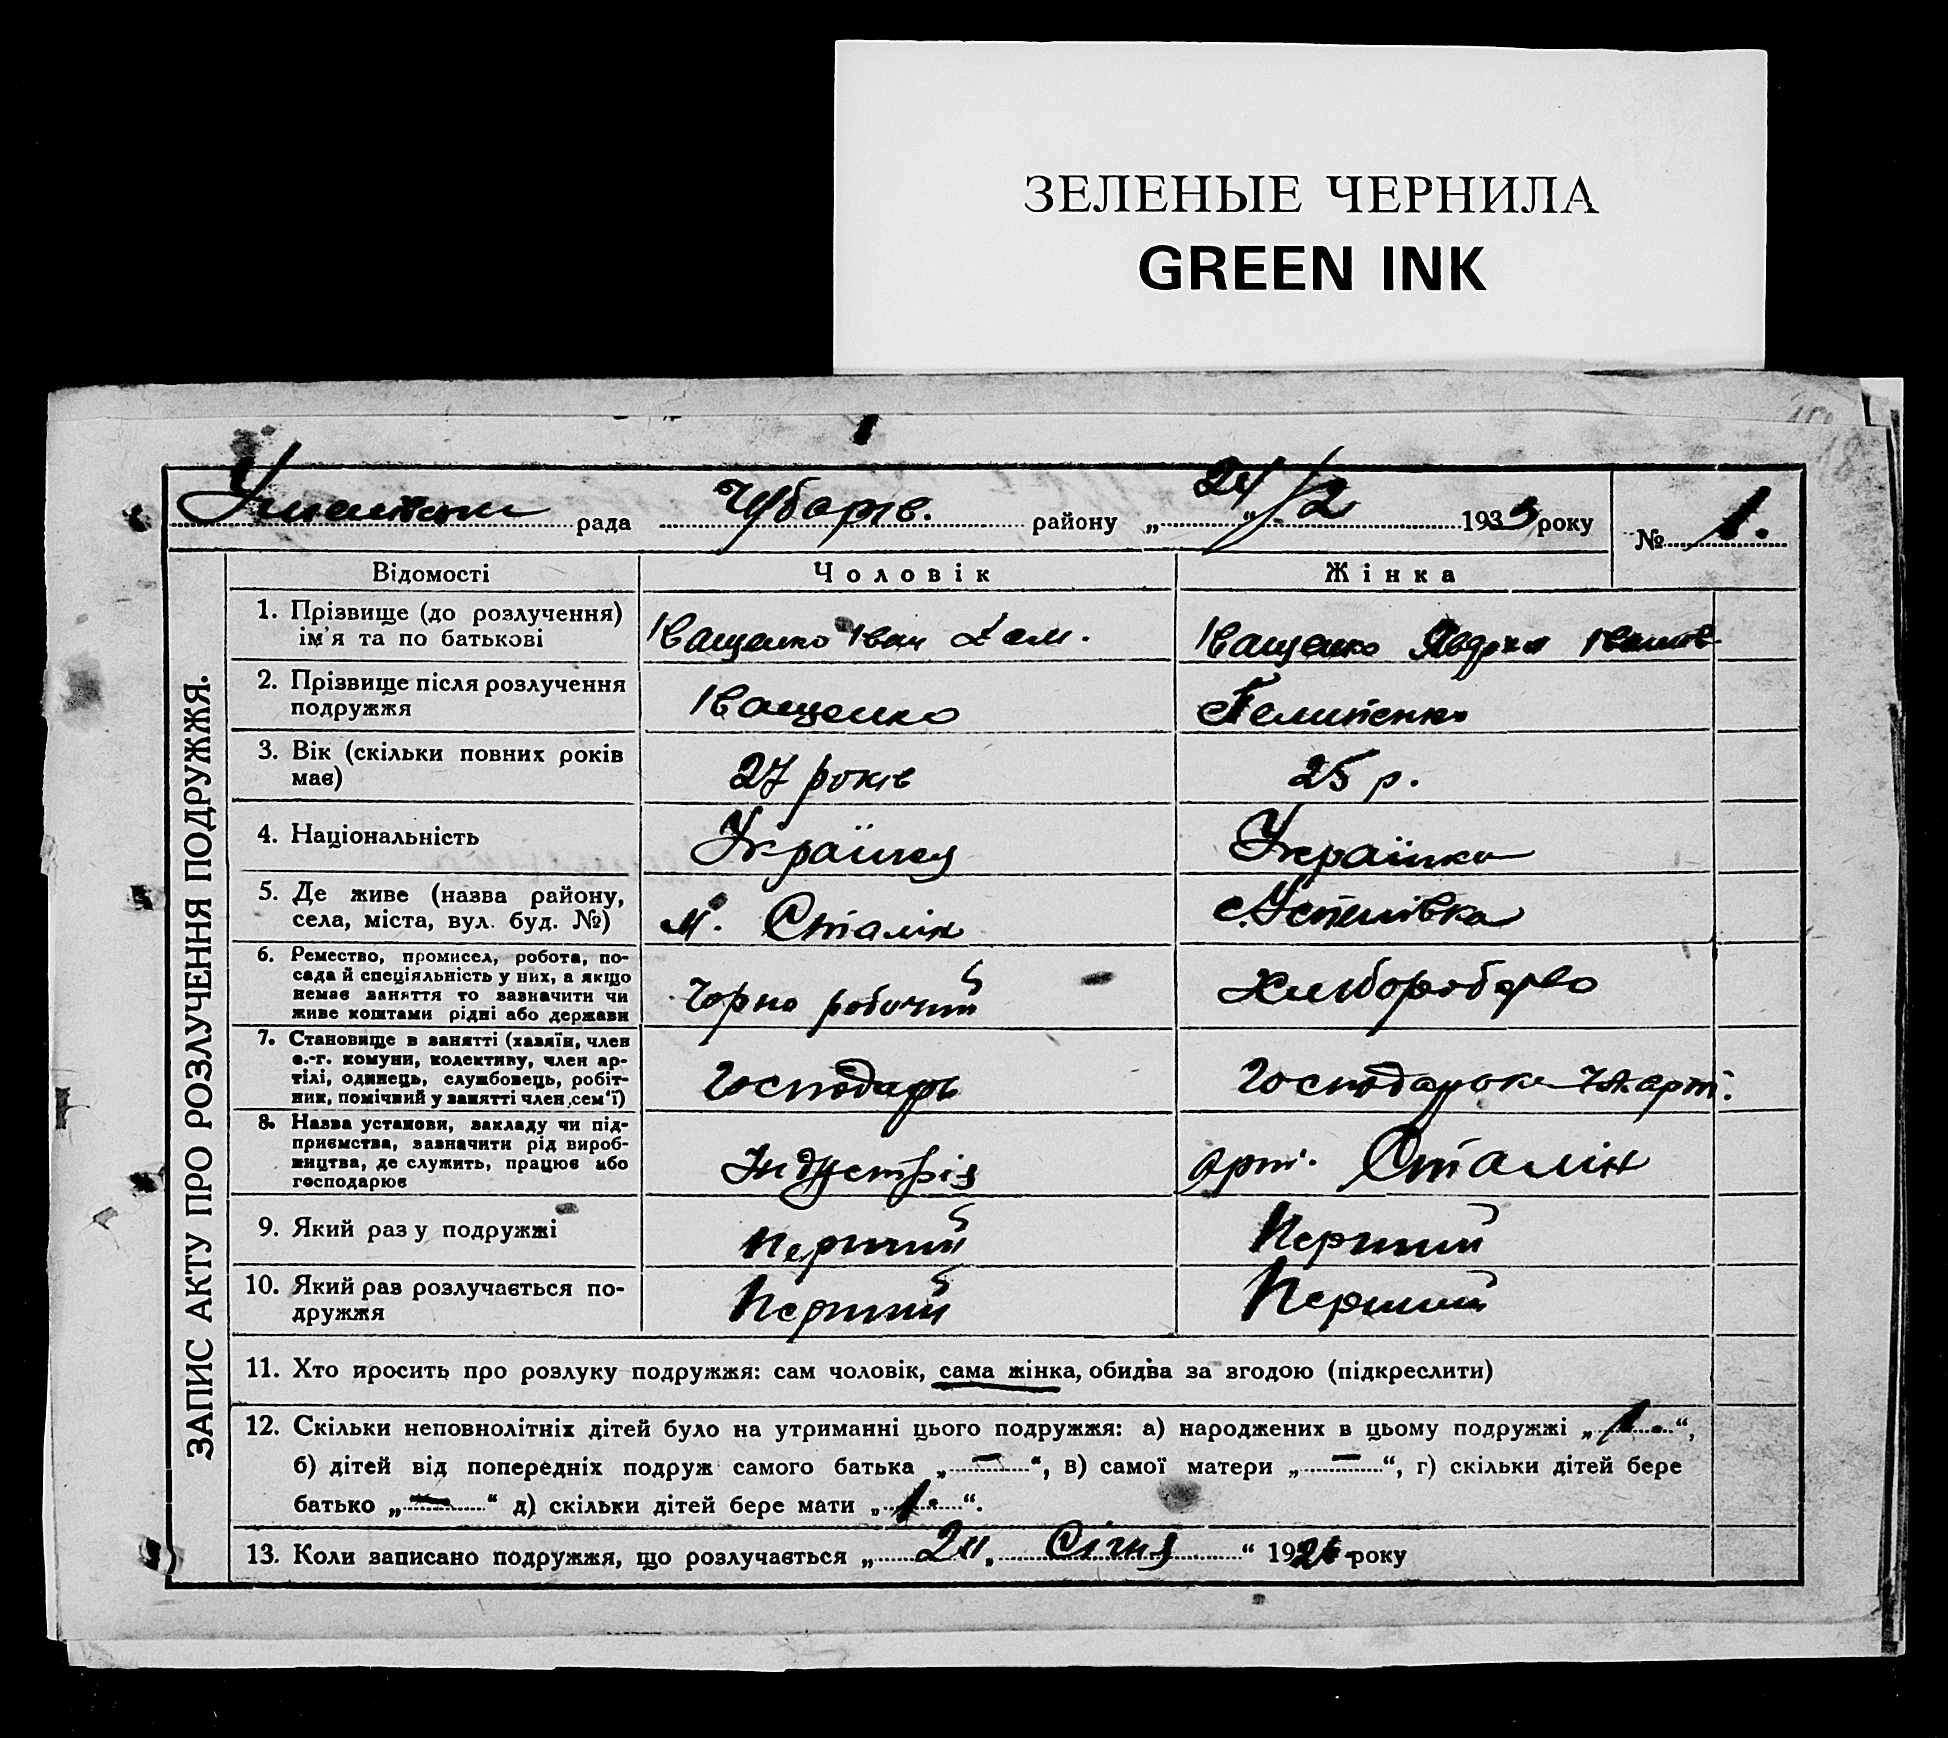 ЗЕЛЕНЫЕ ЧЕРНИЛА
GREEN INK
рада Чубарів. району „24/2 1933 року № 1.
ЗАПИС АКТУ ПРО РОЗЛУЧЕННЯ ПОДРУЖЖЯ.
Відомості Чоловік Жінка
1. Прізвище (до розлучення)
ім'я та по батькові
Іващенко Іван
Іващенко Явдоха
2. Прізвище після розлучення
подружжя
Іващенко
3. Вік (скільки повних років
має)
27 років
25 р.
4. Національність
Українец
Українка
5. Де живе (назва району,
села, міста, вул. буд. №)
м. Сталін
с. Успенівка
6. Ремество, промисел, робота, по-
сада й спеціяльність у них, а якщо
немає заняття то зазначити чи
живе коштами рідні або держави
Чорно робочий
Хлиборобство
7. Становище в занятті (хазяїн, член
с.-г. комуни, колективу, член ар-
тілі, одинець, службовець, робіт-
ник, помічний у занятті член сем'ї)
Господарь
Господарока Чл. арт.
8. Назва установи, закладу чи під-
приємства, зазначити рід вироб-
ництва, де служить, працює або
господарює
Індустрія
арт. Сталін
9. Який раз у подружжі
перший
Перший
10. Який раз розлучається по-
дружжя
Перший
Перший
11. Хто просить про розлуку подружжя: сам чоловік, сама жінка, обидва за згодою (підкреслити)
12. Скільки неповнолітніх дітей було на утриманні цього подружжя: а) народжених в цьому подружжі „1.“,
б) дітей від попередніх подруж самого батька „—“, в) самої матери „—“, г) скільки дітей бере
батько „—“ д) скільки дітей бере мати „1.“.
13. Коли записано подружжя, що розлучається „24„ Січня“ 1926 року